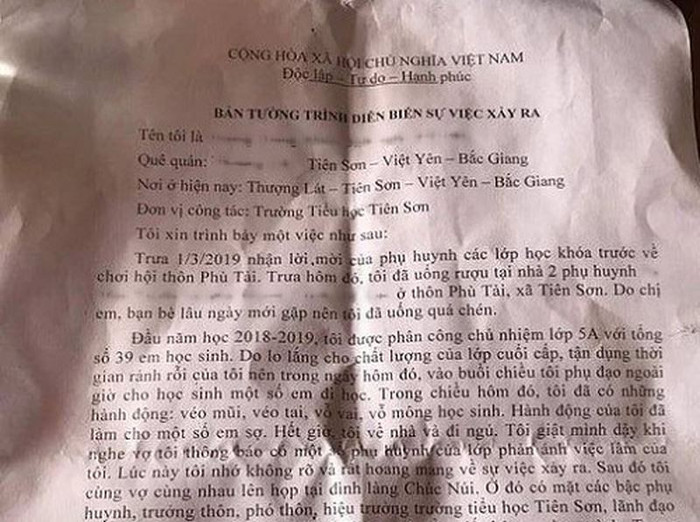 CỘNG HÒA XÃ HỘI CHỦ NGHĨA VIỆT NAM
Độc lập – Tự do – Hạnh phúc
BẢN TƯỜNG TRÌNH DIỄN BIẾN SỰ VIỆC XẢY RA
Tên tôi là
Quê quán: Tiên Sơn – Việt Yên – Bắc Giang
Nơi ở hiện nay: Thượng Lát – Tiên Sơn – Việt Yên – Bắc Giang
Đơn vị công tác: Trường Tiểu học Tiên Sơn
Tôi xin trình bày một việc như sau:
Trưa 1/3/2019 nhận lời mời của phụ huynh các lớp học khóa trước về
chơi hội thôn Phù Tài. Trưa hôm đó, tôi đã uống rượu tại nhà 2 phụ huynh
ở thôn Phù Tài, xã Tiên Sơn. Do chị
em, bạn bè lâu ngày mới gặp nên tôi đã uống quá chén.
Đầu năm học 2018-2019, tôi được phân công chủ nhiệm lớp 5A với tổng
số 39 em học sinh. Do lo lắng cho chất lượng của lớp cuối cấp, tận dụng thời
gian rảnh rỗi của tôi nên trong ngày hôm đó, vào buổi chiều tôi phụ đạo ngoài
giờ cho học sinh một số em đi học. Trong chiều hôm đó, tôi đã có những
hành động: véo mũi, véo tai, vỗ vai, vỗ mông học sinh. Hành động của tôi đã
làm cho một số em sợ. Hết giờ, tôi về nhà và đi ngủ. Tôi giật mình dậy khi
nghe vợ tôi thông báo có một số phụ huynh của lớp phản ánh việc làm của
tôi. Lúc này tôi nhớ không rõ và rất hoang mang về sự việc xảy ra. Sau đó tôi
cùng vợ cùng nhau lên họp tại đình làng Chúc Núi. Ở đó có mặt các bậc phụ
huynh, trưởng thôn, phó thôn, hiệu trưởng trường tiểu học Tiên Sơn, lãnh đạo